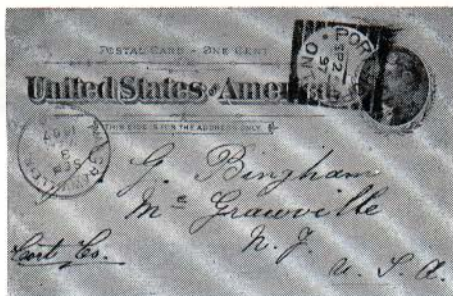 POSTAL CARD - ONE CENT
United States of America
THIS SIDE IS FOR THE ADDRESS ONLY.
POR
SEP 2
97
ONT
SEP
3
1897
G. Bingham
Mc Grawville
N. Y.
Cort Co.
U. S. A.